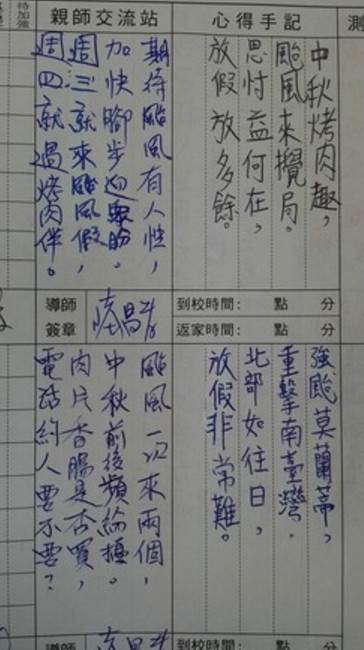 心得手記
中秋烤肉趣，
颱風來攪局。
思忖益何在，
放假放多餘。
親師交流站
期待颱風有人性，
加快腳步迎眾盼。
週三就來颱風假，
週四就過烤肉伴。
到校時間： 點 分
返家時間： 點 分
導師
簽章
強颱莫蘭蒂，
重擊南臺灣．
北部如往日，
放假非常難。
颱風一次來兩個，
中秋前後頻輪播。
肉片香腸是否買，
電話約人要不要？
到校時間： 點 分
導師
待加強
測